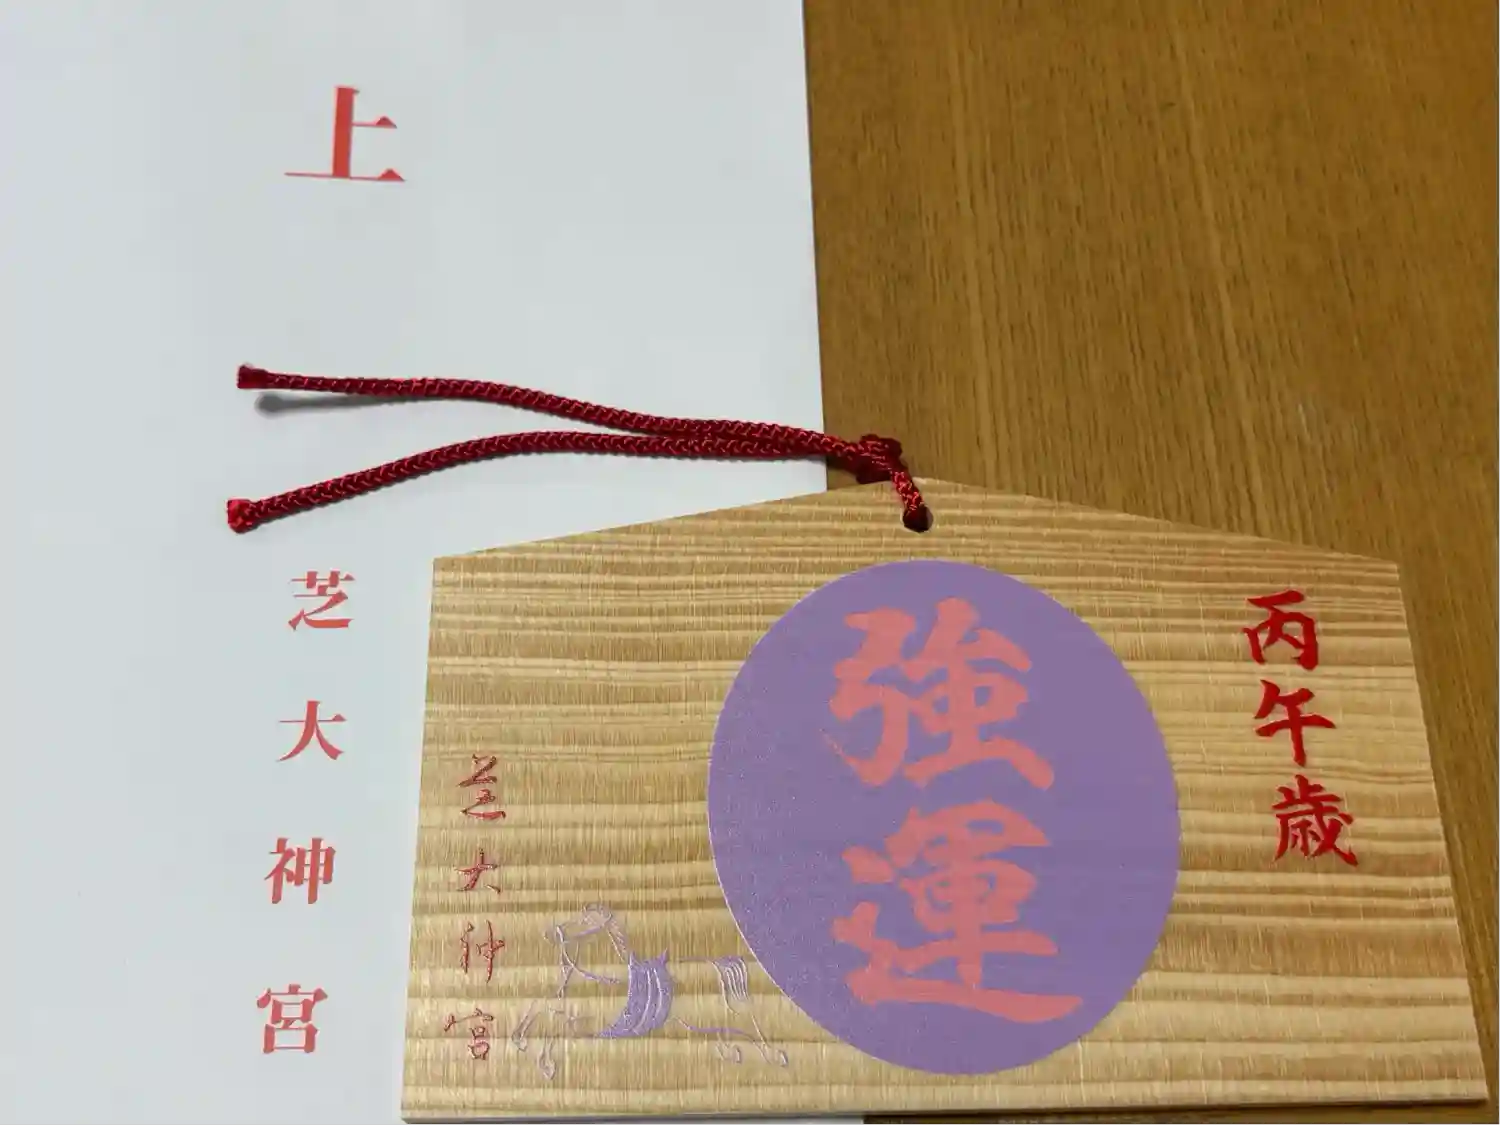 上
芝大神宮
丙午歳
強運
芝大神宮